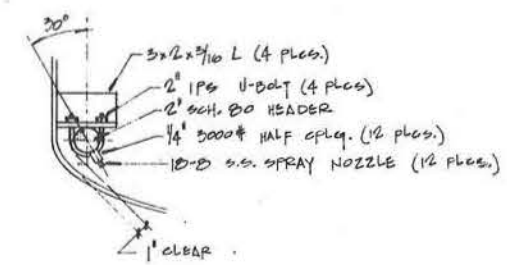 30°
3x2x3/16 L (4 PLCS.)
2" IPS U-BOLT (4 PLCS)
2" SCH. 80 HEADER
1/4" 3000# HALF CPLG. (12 PLCS.)
18-8 S.S. SPRAY NOZZLE (12 PLCS.)
1" CLEAR